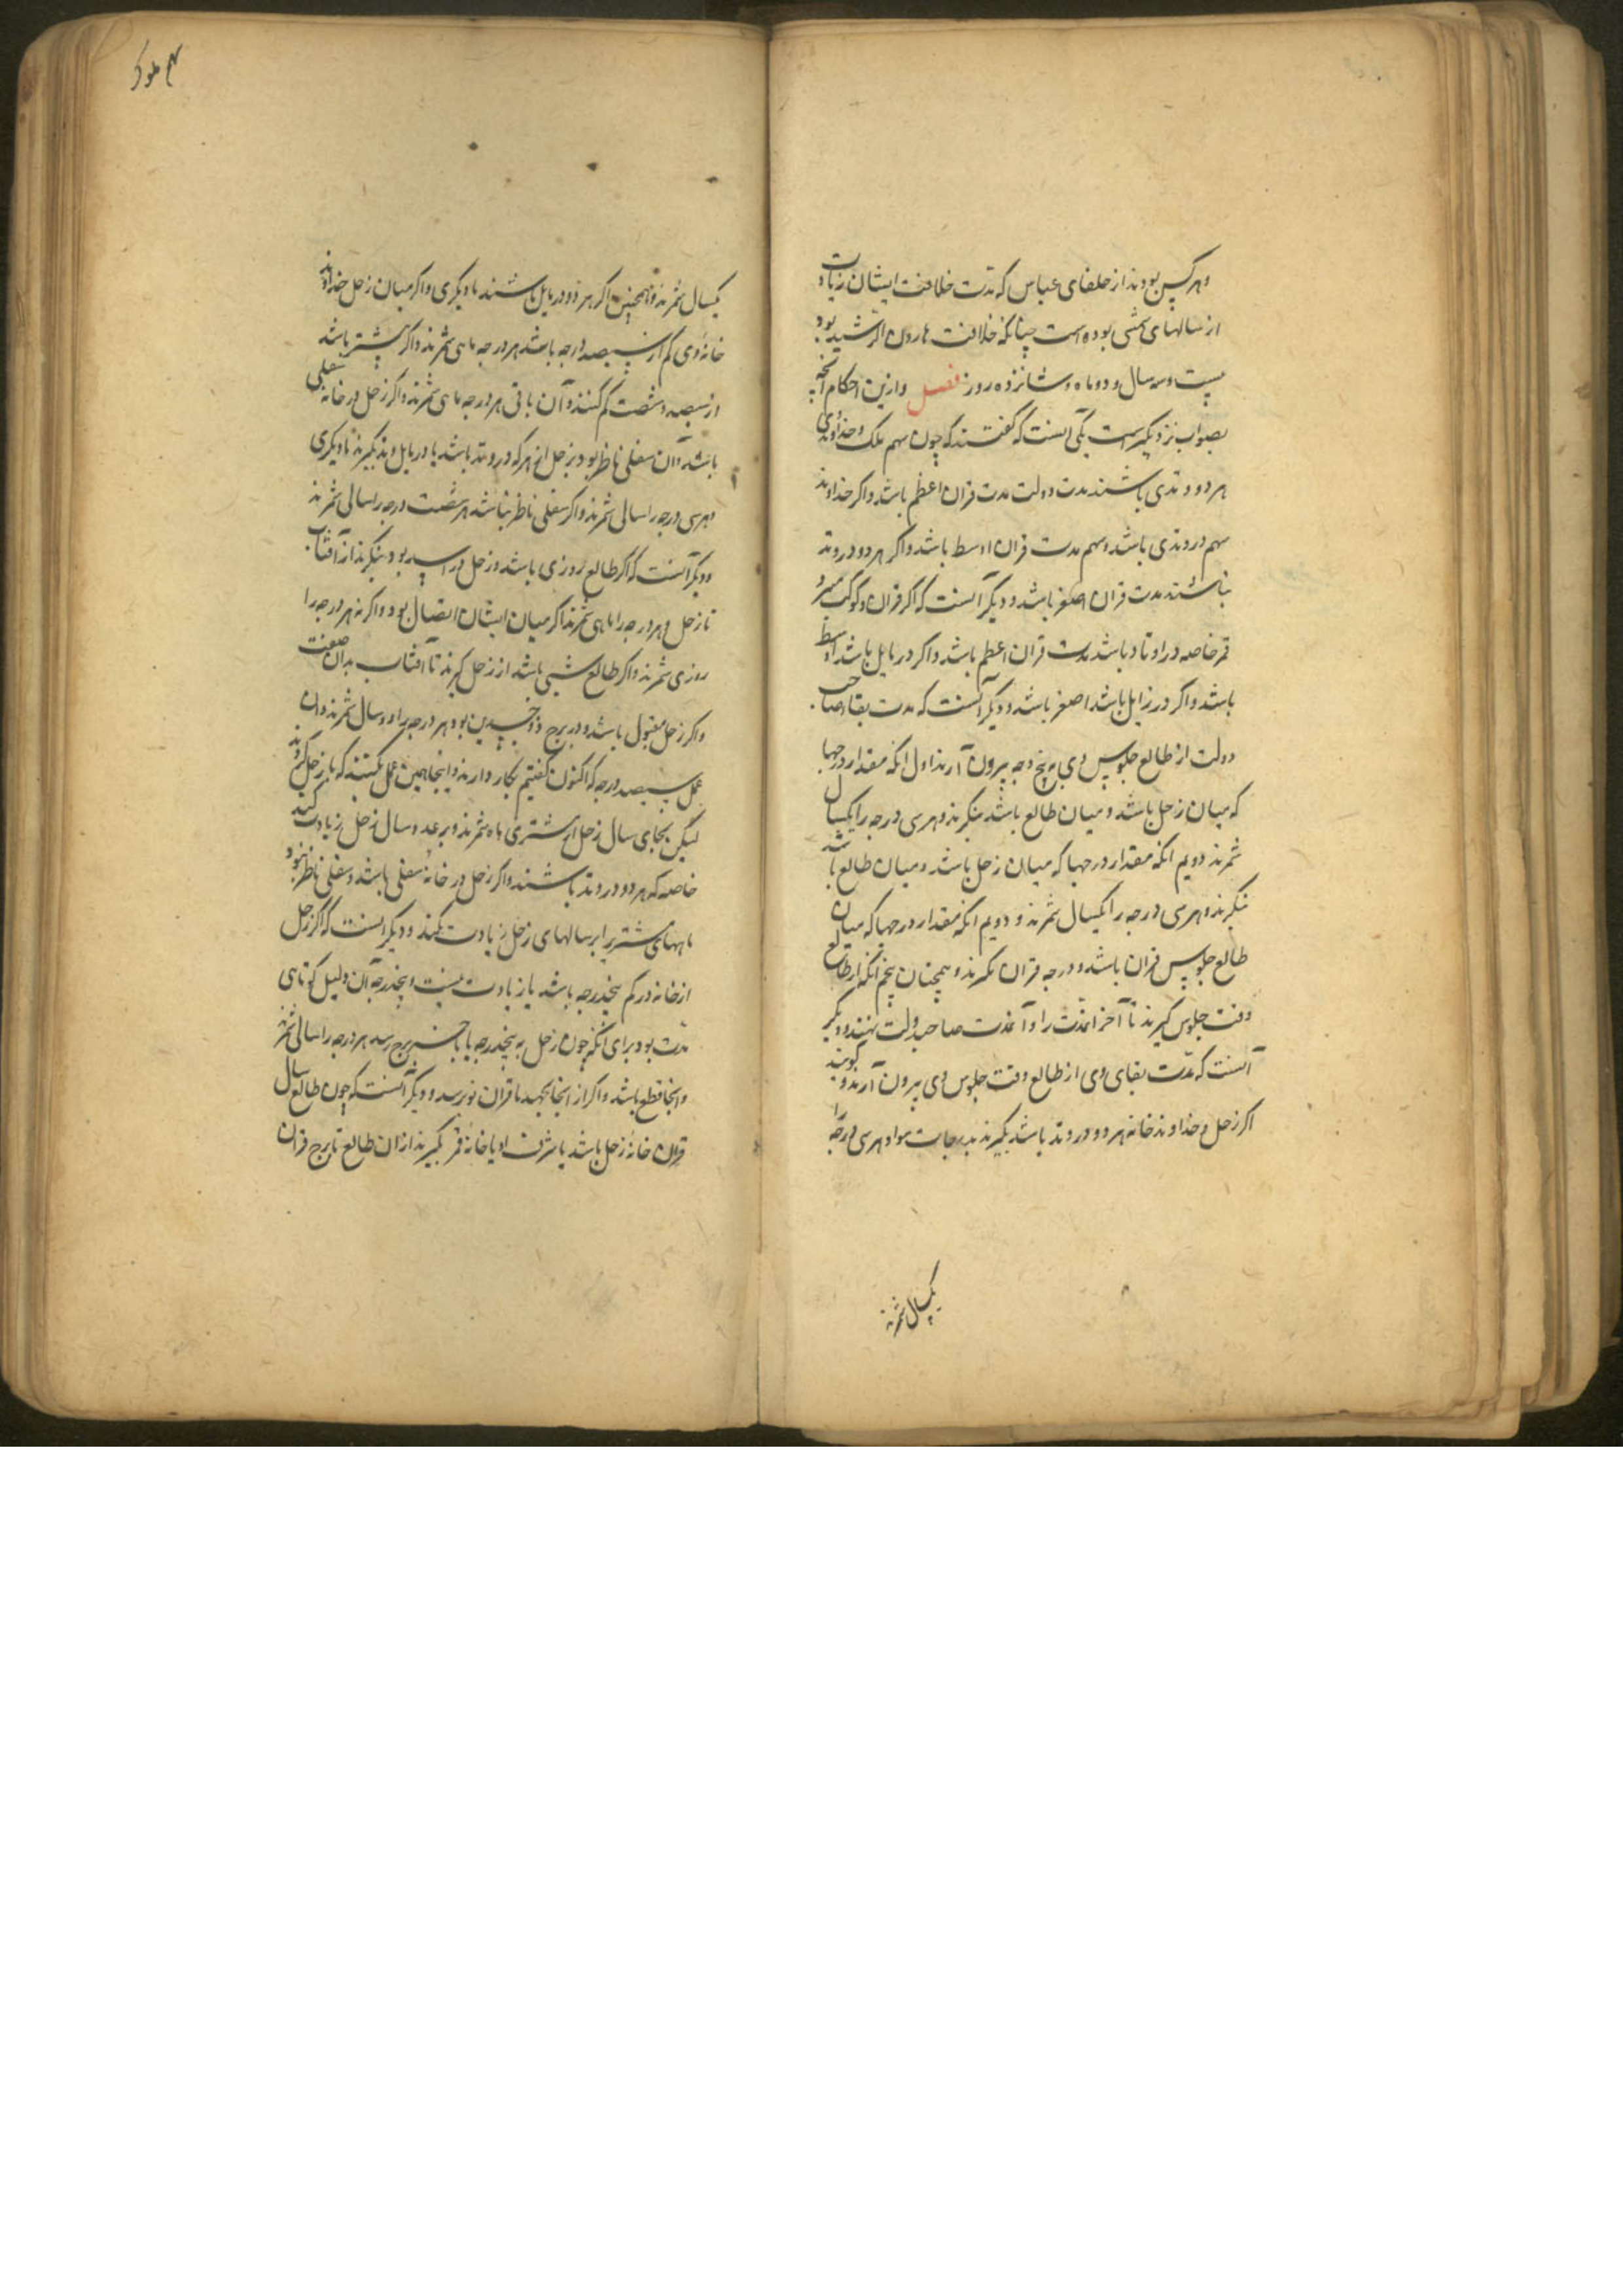 و هر کس بودند از خلفای عباس که مدت خلافت ایشان زیادت
از سالهای شمسی بوده است چنانکه خلافت هارون الرشید بود
بیست و سه سال و دو ماه و شانزده روز فصل و ازین احکام آنچه
بصواب نزدیکتر است یکی آنست که گفتند که چون سهم ملک و خداوندی
هر دو وتدی باشند مدت دولت مدت قران اعظم باشد و اکر خداوند
سهم در وتدی باشد و سهم مدت قران اوسط باشد و اکر هر دو در وتد
نباشند مدت قران اصغر باشد و دیگر آنست که اکر قران و کوکب
قمر خاصه در اوتاد باشد مدت قران اعظم باشد و اکر در مایل باشد اوسط
باشد و اکر در زایل باشد اصغر باشد و دیگر آنست که مدت بقا صاحب
دولت از طالع جلوس وی به پنج وجه بیرون آرند اول انکه مقدار درجها
که میان زحل باشد و میان طالع باشد بنکرند و هر سی درجه را یکسال
شمرند دویم انکه مقدار درجها که میان زحل باشد و میان طالع باشد
بنکرند و هر سی درجه را یکسال شمرند و دویم انکه مقدار درجها که میان
طالع جلوس قران باشد و درجه قران نکرند و همچنان پنجم انکه از طالع
وقت جلوس کیرند تا آخر آمدت را و آنمدت صاحب دولت نهند و دیگر
آنست که مدت بقای وی از طالع وقت جلوس وی بیرون آرند و کویند
اکر زحل و خداوند خانه هر دو در وتد باشد بکیرند بدرجات سوا و هر سی درجه را
یکسال شمرند
سهم ملوک
یکسال شمرند و همچنین اکر هر دو در مایل باشند تا دیگری و اکر میان زحل خداوند
خانه وی کم از سیصد درجه باشد هر درجه ماهی شمرند و اکر بیشتر باشد
از سیصد و شصت کم کنند و آن باقی هر درجه ماهی شمرند و اکر زحل در خانه سفلی
باشد و آن سفلی ناظر بود بزحل از هر که در وتد باشد یا در مایل وتد بکیرند تا دیگری
و هر سی درجه را سالی شمرند و اکر سفلی ناظر نباشد هر شصت درجه را سالی شمرند
و دیگر آنست که اکر طالع روزی باشد و زحل در اسد بود بنکرند از آفتاب
تا زحل و هر درجه را ماهی شمرند اکر میان ایشان اتصال بود و اکر نه هر درجه را
روزی شمرند و اکر طالع شبی باشد از زحل کیرند تا آفتاب بدان صفت
و اکر زحل مقبول باشد و در برج ذو جسدین بود هر درجه را دو سال شمرند و آن
عمل سیصد درجه که اکنون کفتیم بکار دارند و اینجا همین عمل کنند که با زحل کردند
لیکن بجای سال زحل از مشتری ماه شمرند و بر عدد سال زحل زیادت کنند
خاصه که هر دو در وتد باشند و اکر زحل در خانه سفلی باشد و سفلی ناظر نبود
ماههای مشتری را بر سالهای زحل زیادت نکند و دیگر آنست که اکر زحل
از خانه در کم پنجدرجه باشد یا زیادت بیست و پنجدرجه آن دلیل کوتاهی
مدت بود برای آنکه چون زحل به پنجدرجه یا باخر برج رسد هر درجه را سالی شمرند
و آنجا قطع باشد و اکر از آنجا بجهد تا قران نو رسد و دیگر آنست که چون طالع سال
قران خانه زحل باشد یا شرف او یا خانه قمر بکیرند از ان طالع تا برج قران